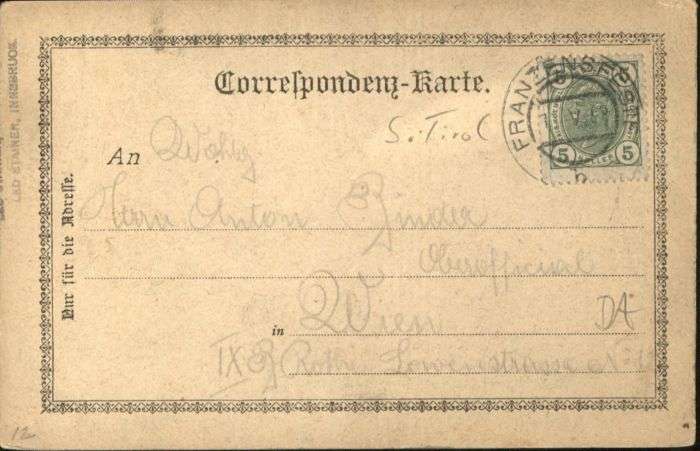 Correspondenz-Karte.
FRANZENSFESTE
5 HELLER 5
S. Tirol
An
Herrn Anton Binder
Oberofficial
in Wien
DA
IX Rothe Löwenstrasse N
Nur für die Adresse.
LEO STAINER, INNSBRUCK
12